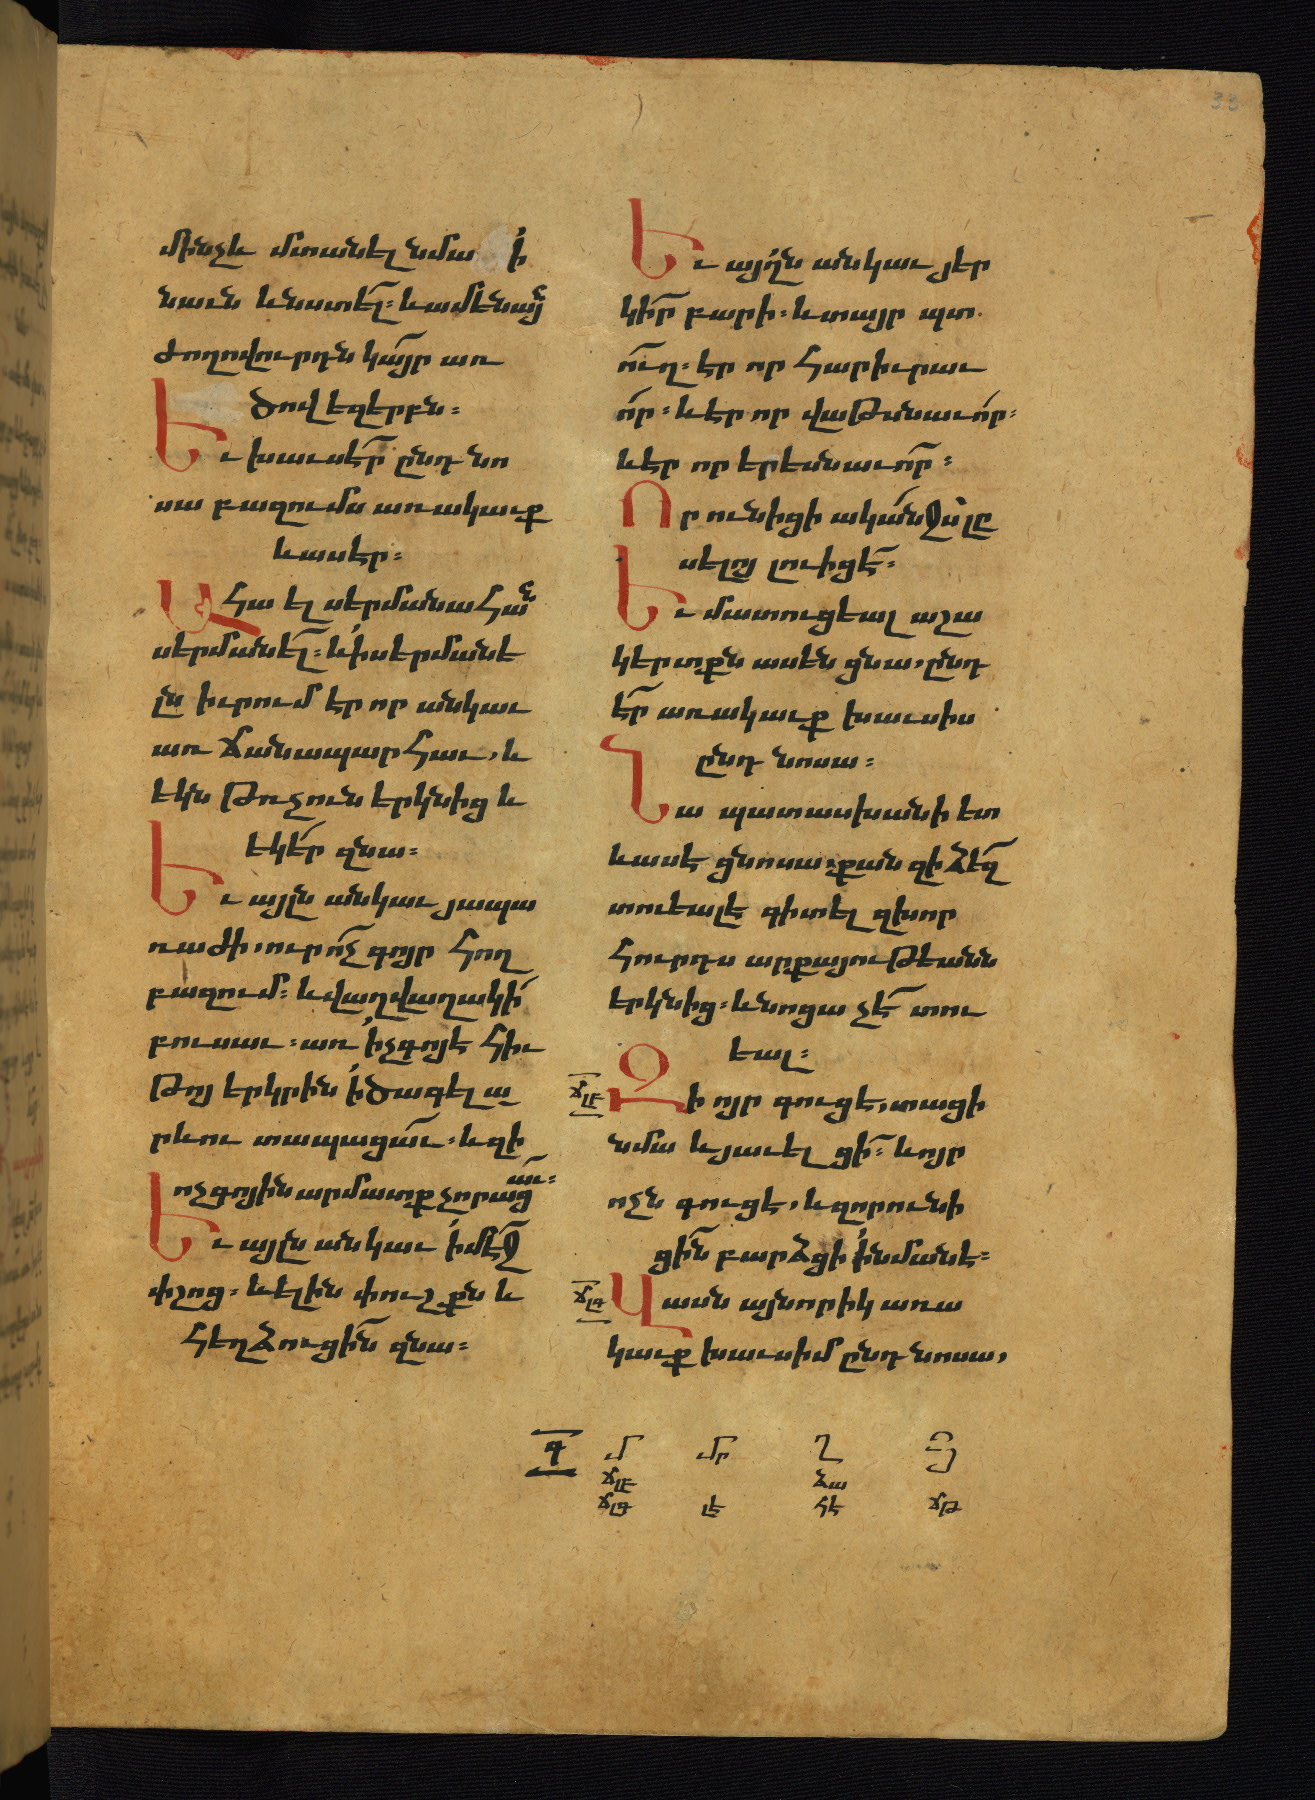 մինչև մտանել նմա ՛ի
նաւն ևնստել։ ևամենայն
ժողովուրդն կայր առ
ծովեզերբն։
Եւ խաւսէր ընդ նո
սա բազումս առակաւք
ևասէր։
Ահա ել սերմանահան
սերմանել։ և՛իսերմանե
լն իւրում էր որ անկաւ
առ ճանապարհաւ, և
եկն թռչուն երկնից և
եկեր զնա։
Եւ այլն անկաւ յապա
ռաժի, ուր ոչ գոյր հող
բազում։ ևվաղվաղակի
բուսաւ. առ ՛իչգոյե հիւ
թոյ երկրին ՛իծագել ա
րևու տապացաւ. ևզի
ոչգոյին արմատք չորացաւ։
Եւ այլն անկաւ ՛իմէջ
փշոց. ևելին փուշքն և
հեղձուցին զնա։
Եւ այլն անկաւ յեր
կիր բարի. ևտայր պտ
ուղ. էր որ հարիւրաւ
որ. ևէր որ վաթսնաւոր։
ևէր որ երեսնաւոր։
Որ ունիցի ականջս լը
սելոյ լուիցէ։
Եւ մատուցեալ աշա
կերտքն ասեն ցնա, ընդ
էր առակաւք խաւսիս
ընդ նոսա։
Նա պատասխանի ետ
ևասէ ցնոսա. քան զի ձեզ
տուեալէ գիտել զխոր
հուրդս արքայութեանն
երկնից. ևնոցա չէ տու
եալ։
ճլե Զի ոյր գուցե, տացի
նմա ևյաւել ցի. ևոյր
ոչն գուցե, ևզորունի
ցին բարձցի ՛ինմանե։
ճլզ Վասն այնորիկ առա
կաւք խաւսիմ ընդ նոսա,
գ մ մր ղ
ճլե ձա
ճլզ լէ հէ ճթ